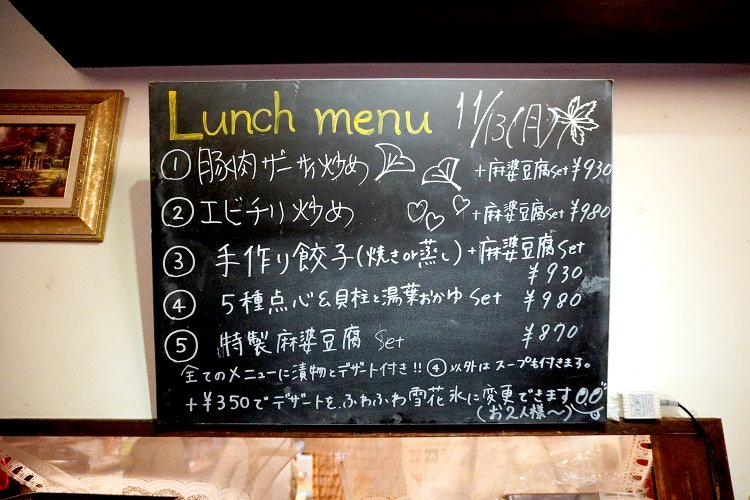 Lunch menu 11/13(月)
① 豚肉ザーサイ炒め +麻婆豆腐set ¥930
② エビチリ炒め +麻婆豆腐set ¥980
③ 手作り餃子(焼きor蒸し)+麻婆豆腐set
¥930
④ 5種点心&貝柱と湯葉おかゆ set ¥980
⑤ 特製麻婆豆腐 set ¥870
全てのメニューに漬物とデザート付き!! ④以外はスープも付きます。
+¥350でデザートを、ふわふわ雪花氷に変更できます
(お2人様〜)